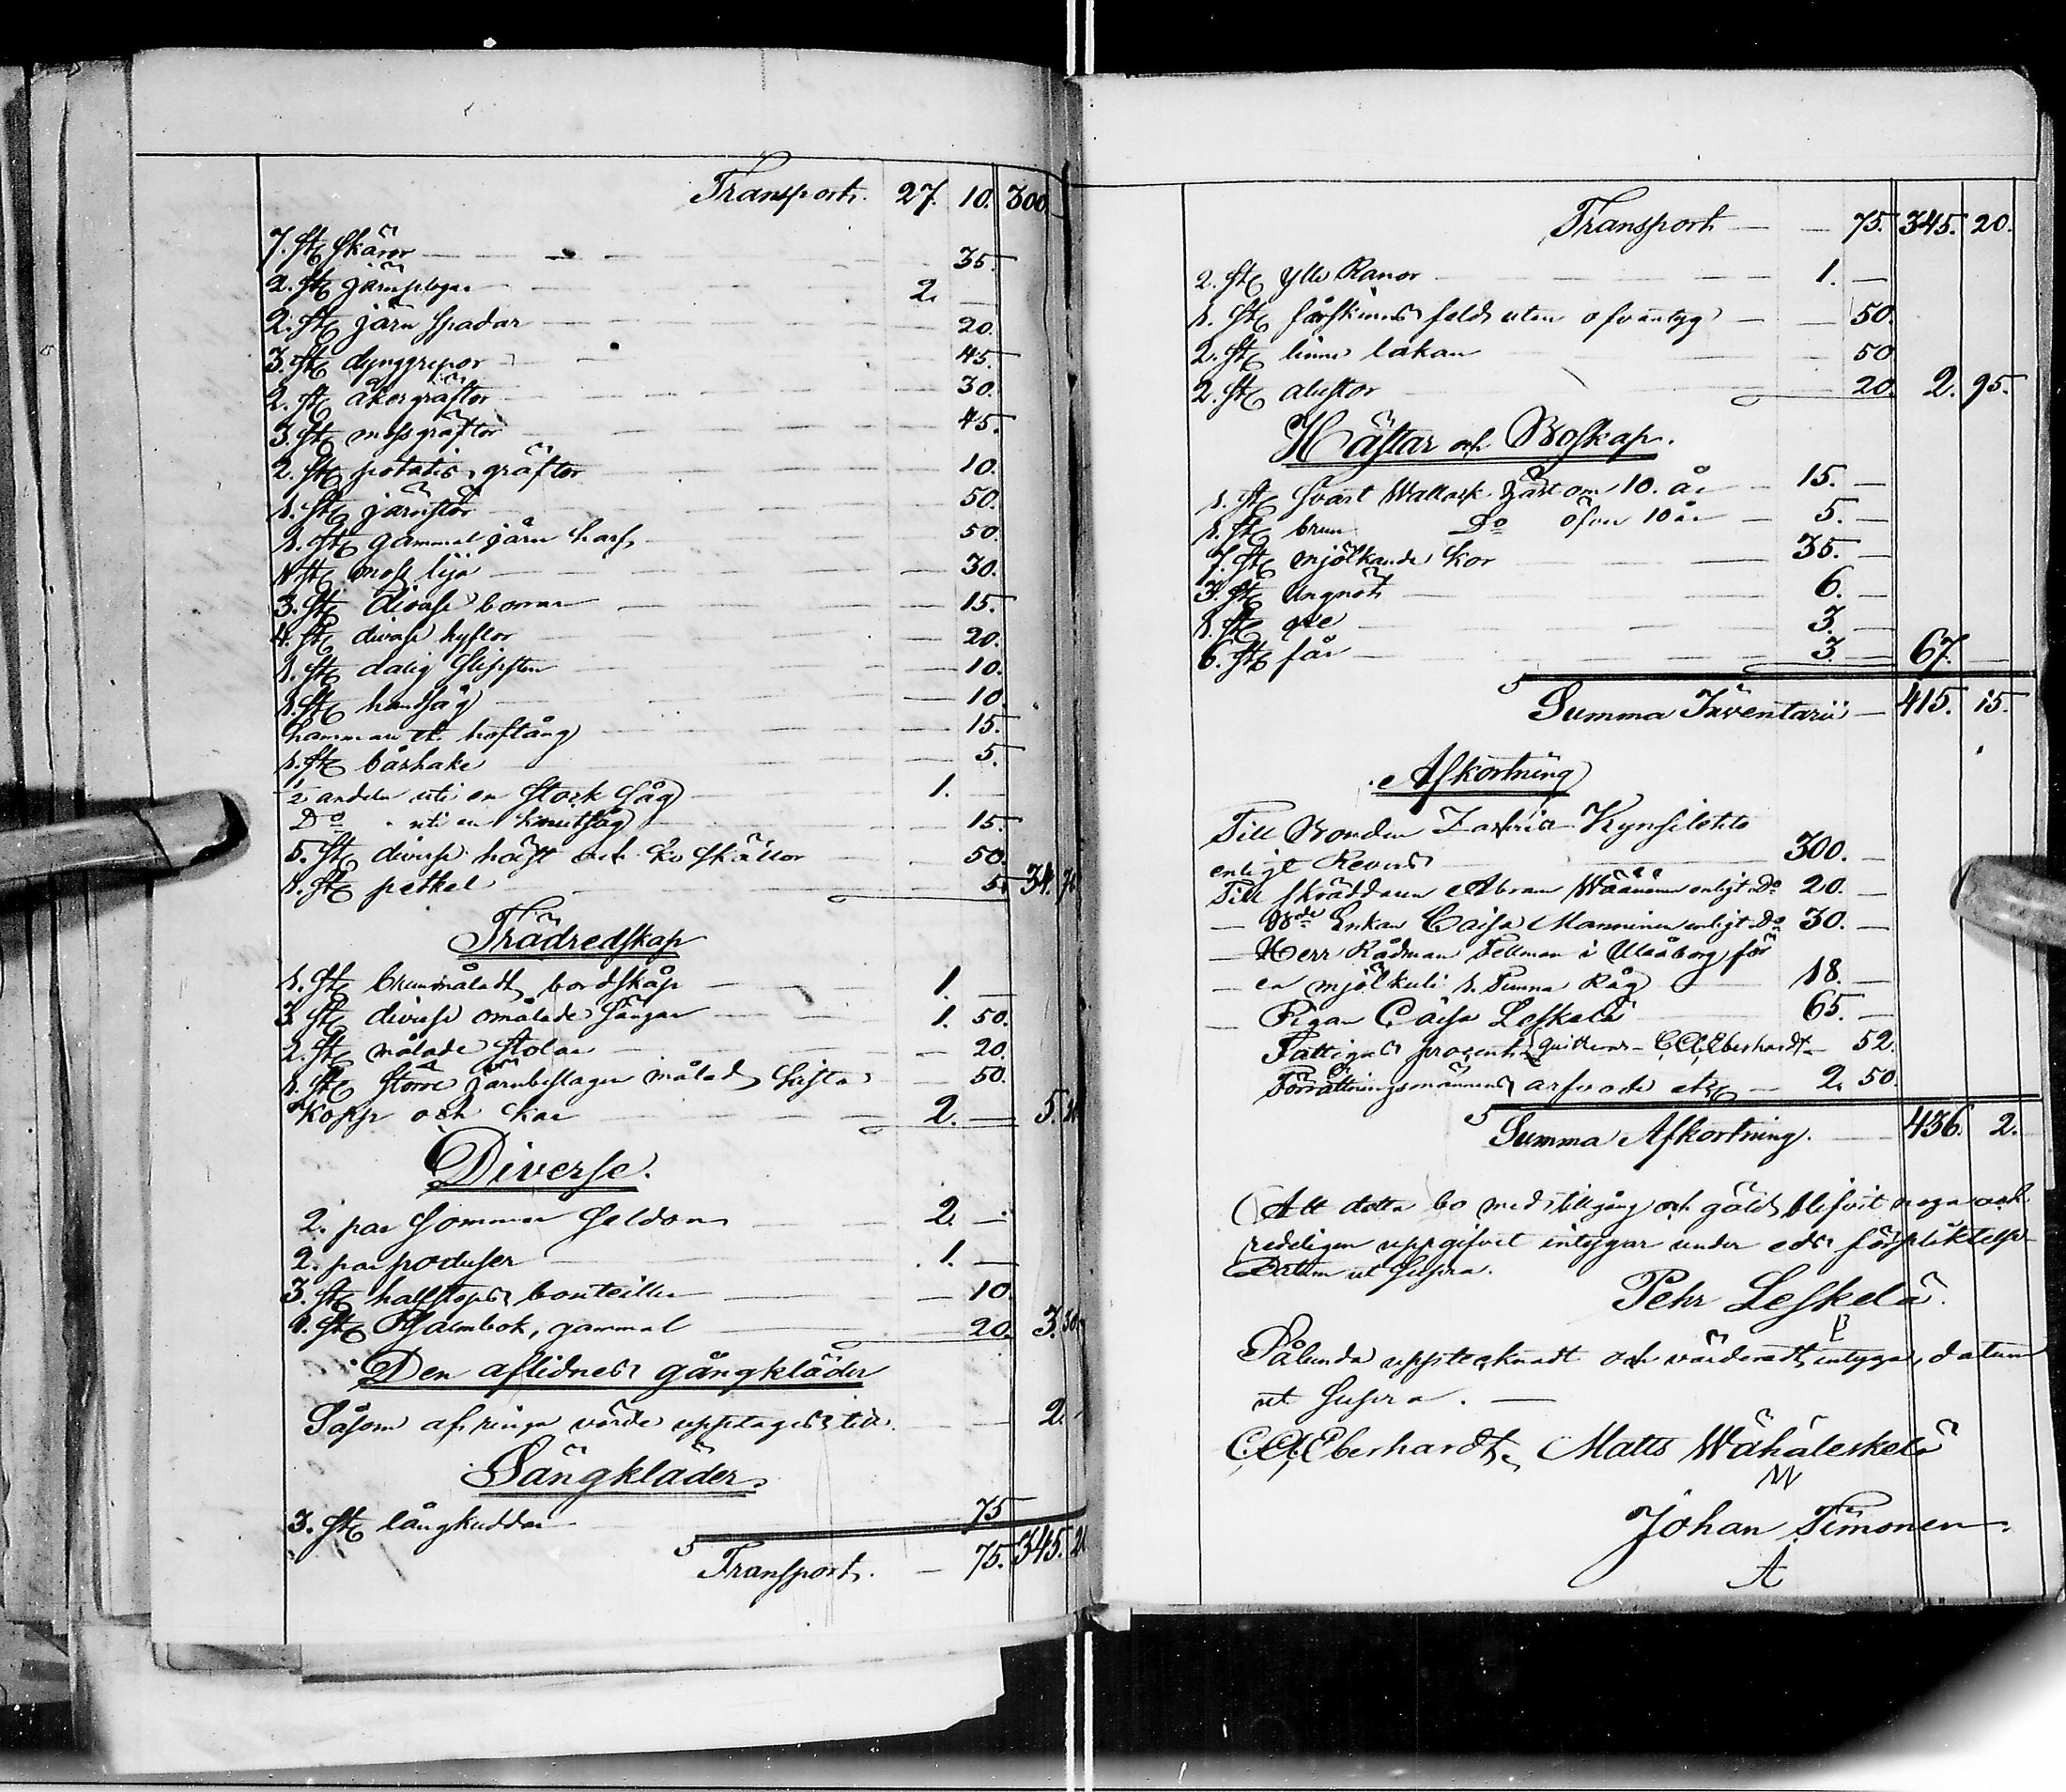 Transport. 27. 10. 300.
7. st skäror 35.
2. st järnplogar 2. —
2. st järn spadar 20.
3. st dynggrepor 45.
2. st åkergräftor 30.
3. st mossgräftor 45.
2. st potatis gräftor 10.
1. st järnstör 50.
1. st gammal järn harf 50.
1. st moss lija 30.
3. st diverse borrar 15.
4. st diverse hyflor 20.
1. st dålig slipsten 10.
1. st handsåg 10.
hammare et. hoftång 15.
1. st bårhake 5.
½ andelen uti en stock såg 1. —
Do uti en såg 15.
5. st diverse häst och ko skällor 50.
1. st petkel 5. 34.
Trädredskap
1. st brunmåladt bordskåp 1. —
3 st diverse omålade sängar 1. 50.
2. st målade stolar 20.
1. st större järnbeslagen målad kista 50.
Koppr och kar 2. — 5.
Diverse.
2. par sommar seldon 2. —
2. par poduser 1. —
3. st halfstops bouteiller 10.
1. st Psalmbok, gammal 20. 3. 30
Den aflidnes gångkläder
Såsom af ringa värde upptages till 2.
Sängkläder.
3. st långkuddar 75
Transport. 75. 345. 20
Transport 75. 345. 20.
2. st ylle Ranor 1. —
1. st fårskinns fäld utan ofvantyg 50.
2. st linne lakan 50
2. st alustor 20. 2. 95.
Hästar och Boskap.
1. st svart Wallack häst om 10. år 15. —
1. st brun Do öfver 10 år 5. —
7. st mjölkande kor 35. —
3. st Ungnöt 6. —
1. st qve 3. —
6. st får 3. — 67. —
Summa Inventarii 415. 15.
Afkortning
Till Bonden Zachris Kynsilehto
enligt Revers 300. —
Till skräddaren Abram Wäänänen enligt Do 20. —
— Enkan Caisa Manninen enligt Do 30. —
— Herr Rådman Tellman i Uleåborg för
— en mjölkuli 1. Tunna Råg 18. —
— Pigan Caisa Leskelä 65. —
Fattiges procent quitteras C.A. Eberhardt 52.
Förrättningsmännens arfvode etc 2. 50.
Summa Afkortning. 436. 2.
Att detta bo med tillgång och gäld blifvit noga och
redeligen uppgifvit intygar under eds förpliktelse
Datum ut supra.
Pehr Leskelä.
Sålunda upptecknadt och värderadt, intyga, datum
ut supra. —
C.A. Eberhardt, Matts Wähäleskelä
Johan Timonen.